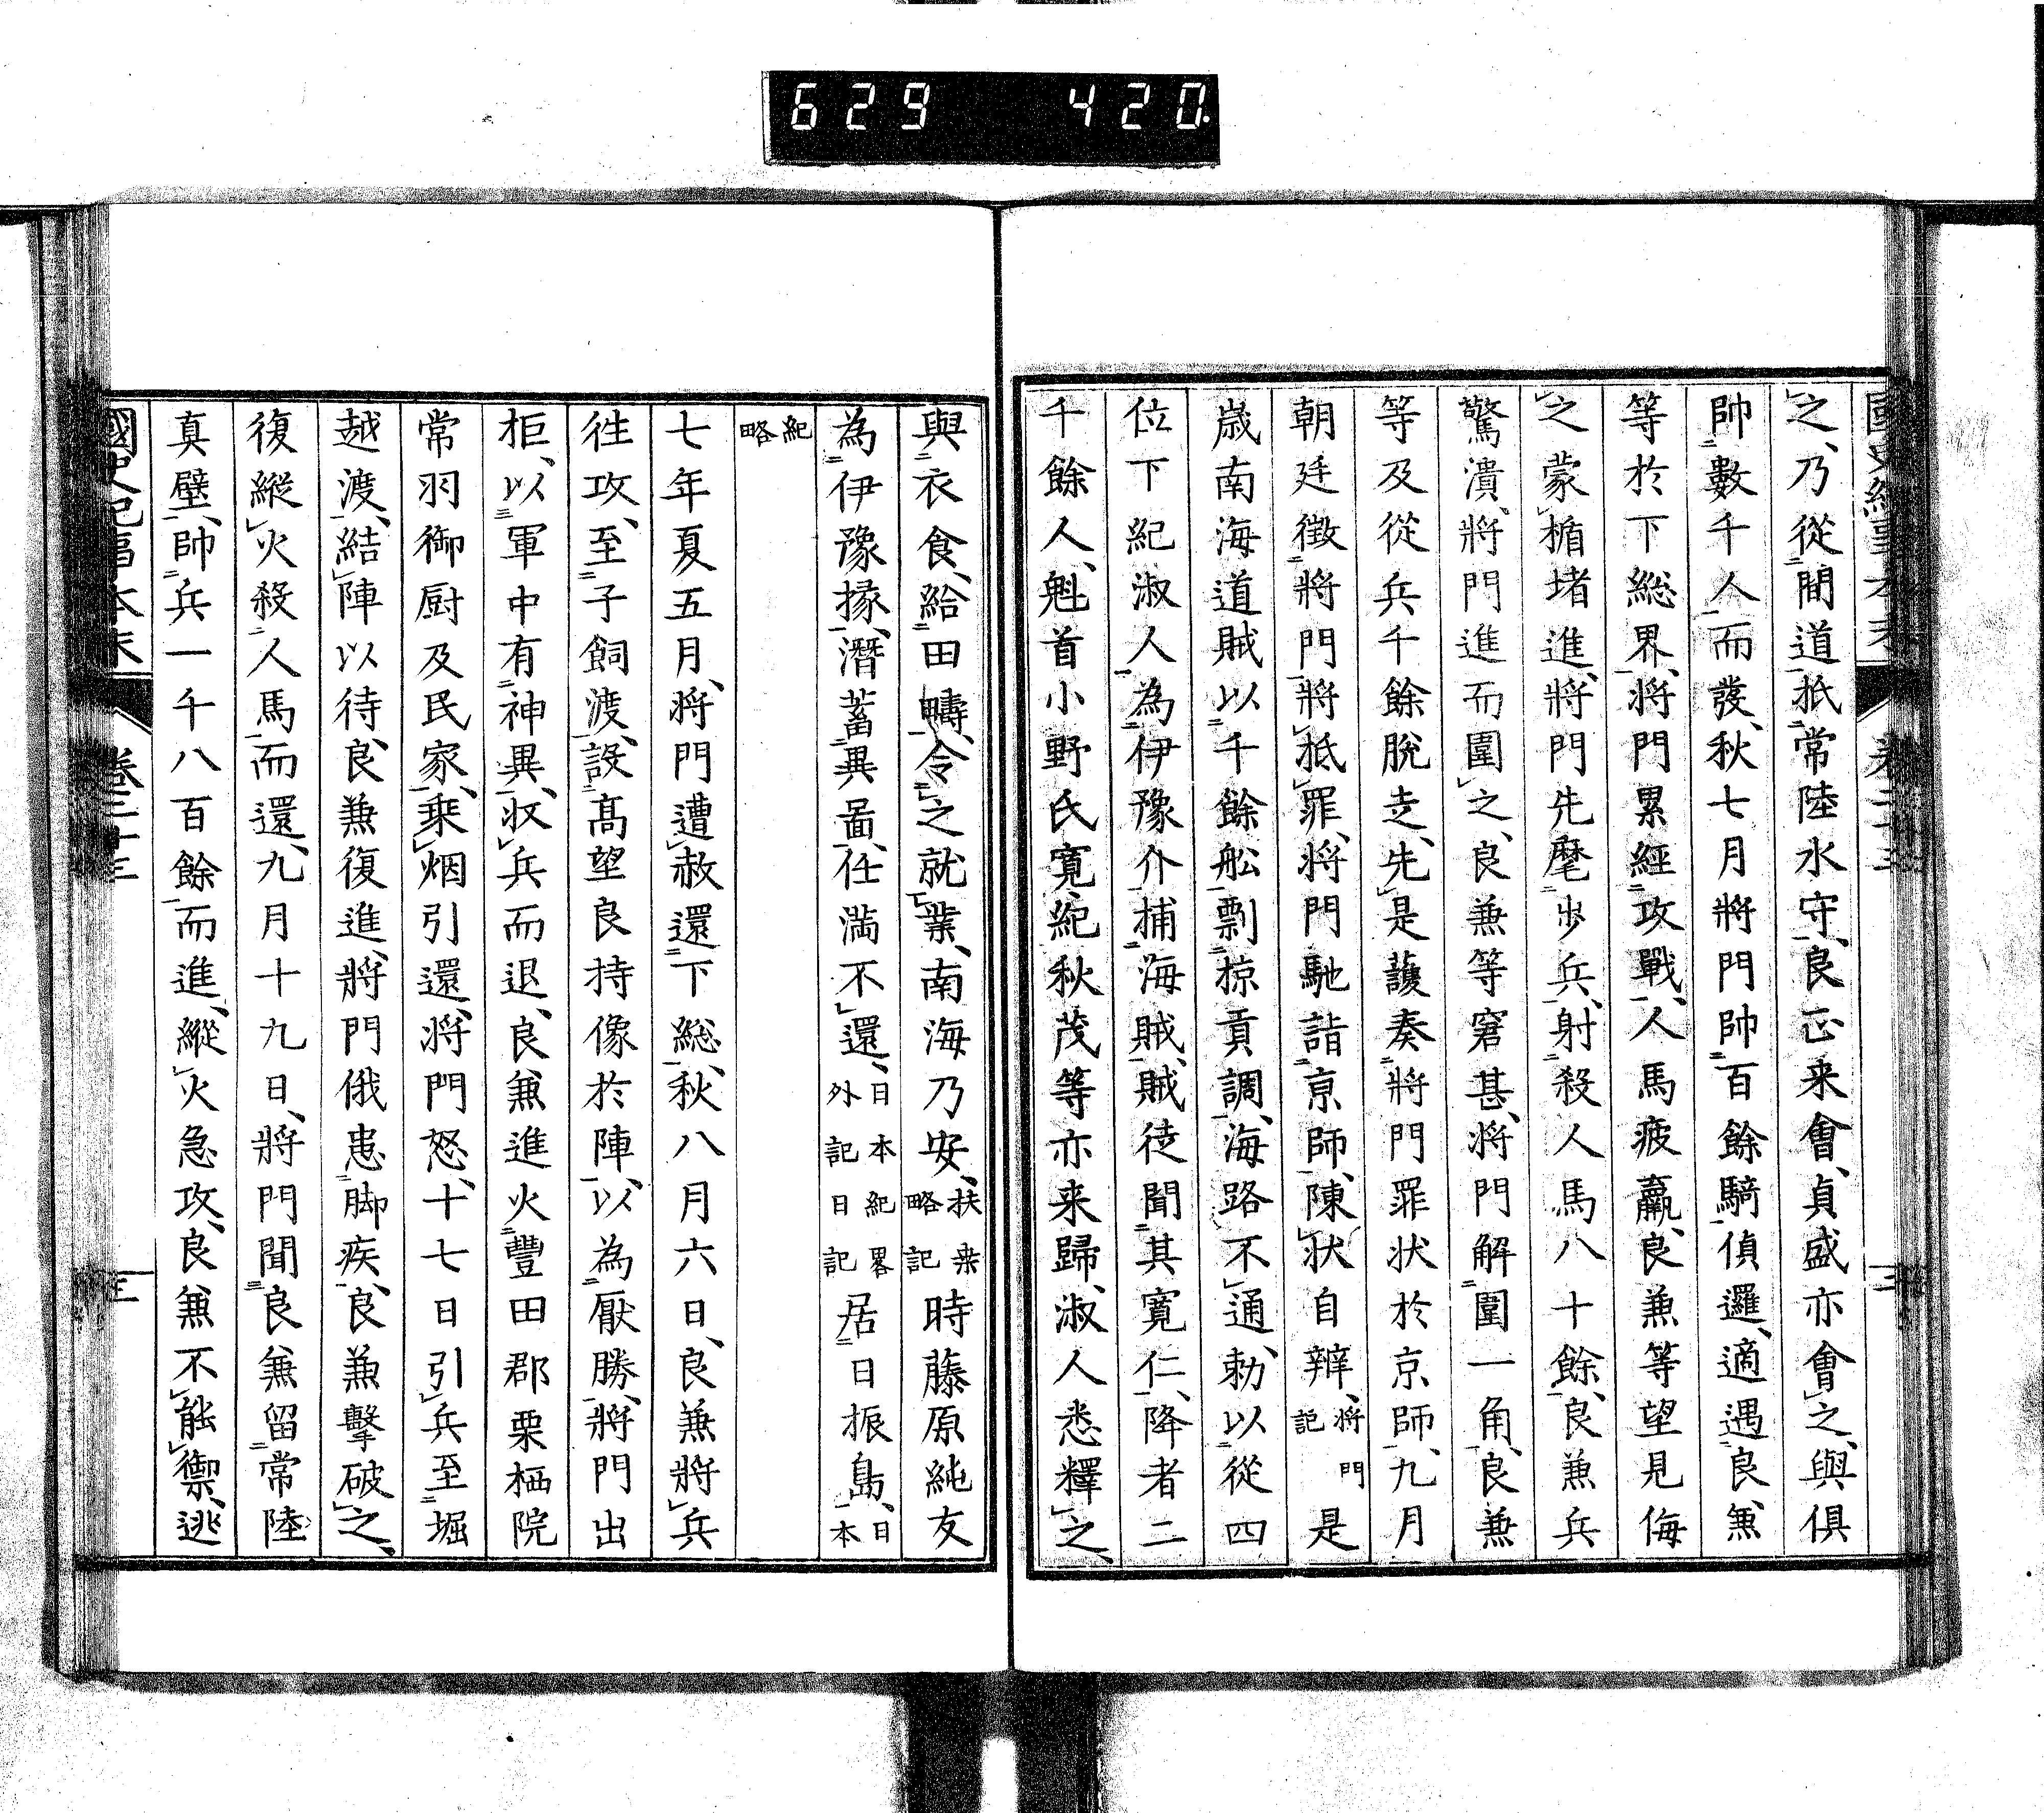 629 420
之、乃從間道祗常陸水守、良正来會、貞盛亦會之、與俱
帥數千人而發、秋七月將門帥百餘騎偵邏、適遇良兼
等於下総界、將門累經攻戰、人馬疲羸、良兼等望見侮
之、蒙楯堵進、將門先麾歩兵、射殺人馬八十餘、良兼兵
驚潰、將門進而圍之、良兼等窘甚、將門解圍一角、良兼
等及從兵千餘脫走、先是護奏將門罪状於京師、九月
朝廷徴將門將抵罪、將門馳詣京師、陳状自辨、將門記 是
歳南海道賊以千餘舩剽掠貢調、海路不通、勅以從四
位下紀淑人為伊豫介捕海賊、賊徒聞其寛仁、降者二
千餘人、魁首小野氏寛、紀秋茂等亦来歸、淑人悉釋之、
與衣食、給田疇、令之就業、南海乃安、扶桒略記 時藤原純友
為伊豫掾、潛蓄異啚、任満不還、日本紀畧外記日記 居日振島、日本
紀略
七年夏五月、將門遭赦還下総、秋八月六日、良兼將兵
徃攻、至子飼渡、設髙望良持像於陣、以為厭勝、將門出
拒、以軍中有神異、収兵而退、良兼進火豐田郡栗栖院
常羽御厨及民家、乗烟引還、將門怒、十七日引兵至堀
越渡、結陣以待、良兼復進、將門俄患脚疾、良兼擊破之、
復縱火殺人馬而還、九月十九日、將門聞良兼留常陸
真壁、帥兵一千八百餘而進、縱火急攻、良兼不能禦、逃
國史紀事本末 卷二十三 三